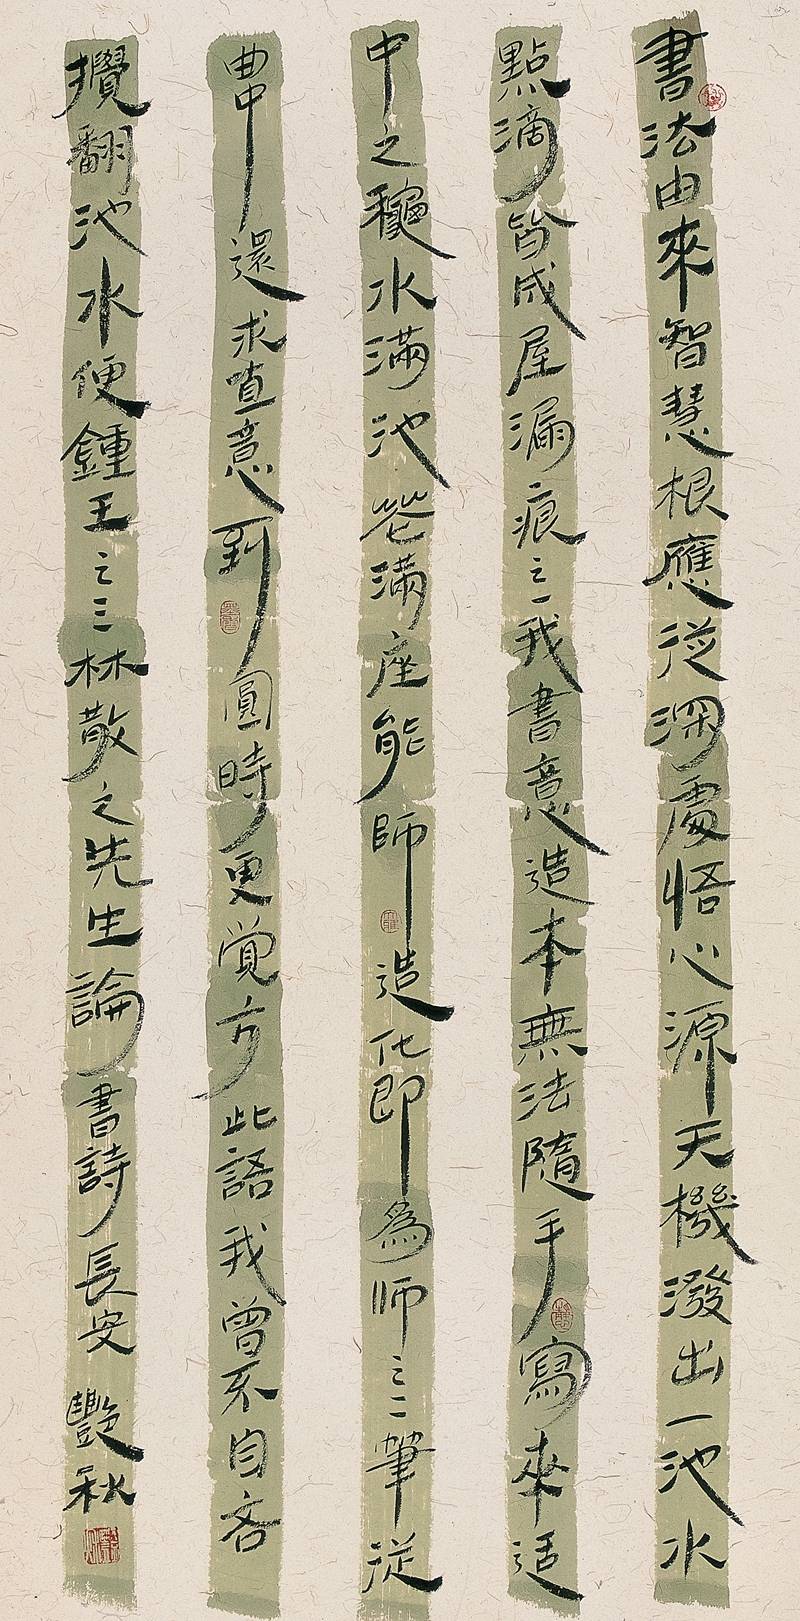 書法由來智慧根應從深處悟心源天機潑出一池水
點滴皆成屋漏痕之一我書意造本無法隨手寫來適
中之秋水滿池花滿座能師造化即為師之二筆從
曲中還求直意到圓時更覺方此語我曾不自吝
攪翻池水便鍾王之三林散之先生論書詩長安艷秋